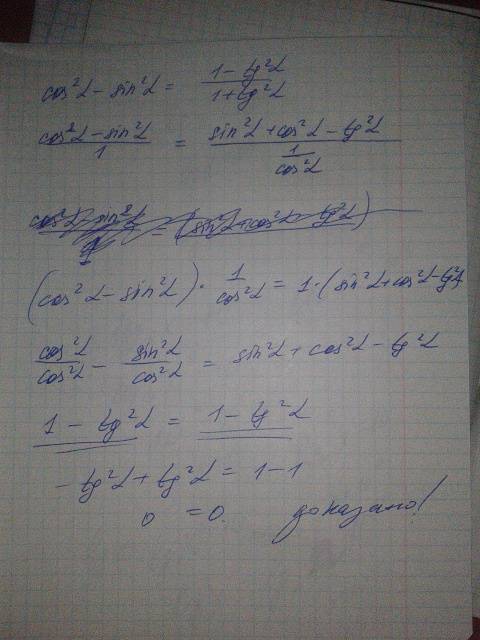 cos²α - sin²α = (1 - tg²α)/(1 + tg²α)
(cos²α - sin²α)/1 = (sin²α + cos²α - tg²α)/(1/cos²α)
(cos²α - sin²α) · 1/cos²α = 1 · (sin²α + cos²α - tg²α)
cos²α/cos²α - sin²α/cos²α = sin²α + cos²α - tg²α
1 - tg²α = 1 - tg²α
- tg²α + tg²α = 1 - 1
0 = 0. доказано!